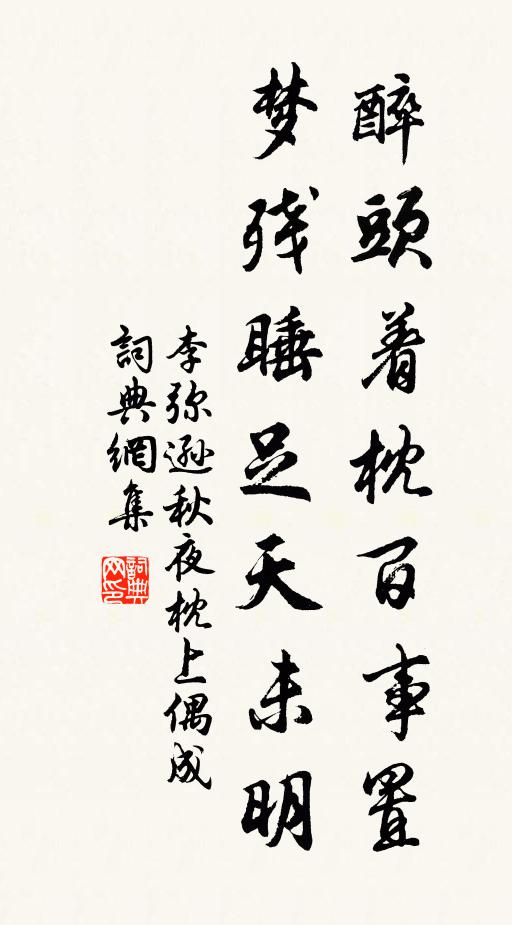 醉頭着枕百事置
梦残睡足天未明
李弥遜秋夜枕上偶成
詞典網集
詞典网印